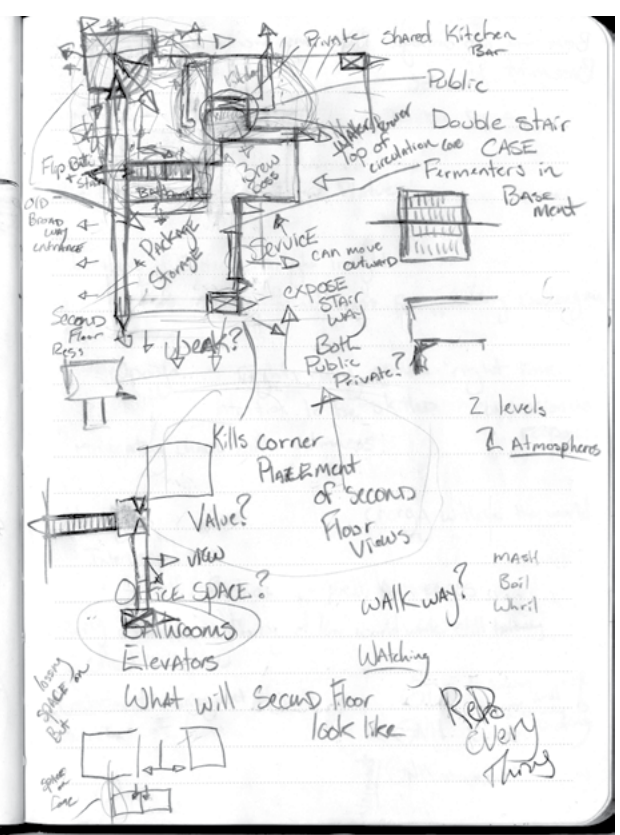 Private Shared Kitchen
Bar
Public
Water
Top of
circulation core
Double Stair
CASE
Fermenters in
BASE
ment
Kitchen
Flip
Stair
Brew
Boss
OlD
Broad
way
entrance
Package
Storage
Service
can move
outward
expose
STAIR
WAY
Both
Public
Private?
Second
Floor
Ress
Weak?
2 levels
2 Atmospheres
Kills corner
Placement
of second
Floor
Views
Value?
View
OFFICE SPACE?
Bathrooms
Elevators
WALK WAY?
MASH
Boil
Whirl
Watching
What will Second Floor
look like
Redo
every
Thing
lossing
SPACE on
But
SPACE